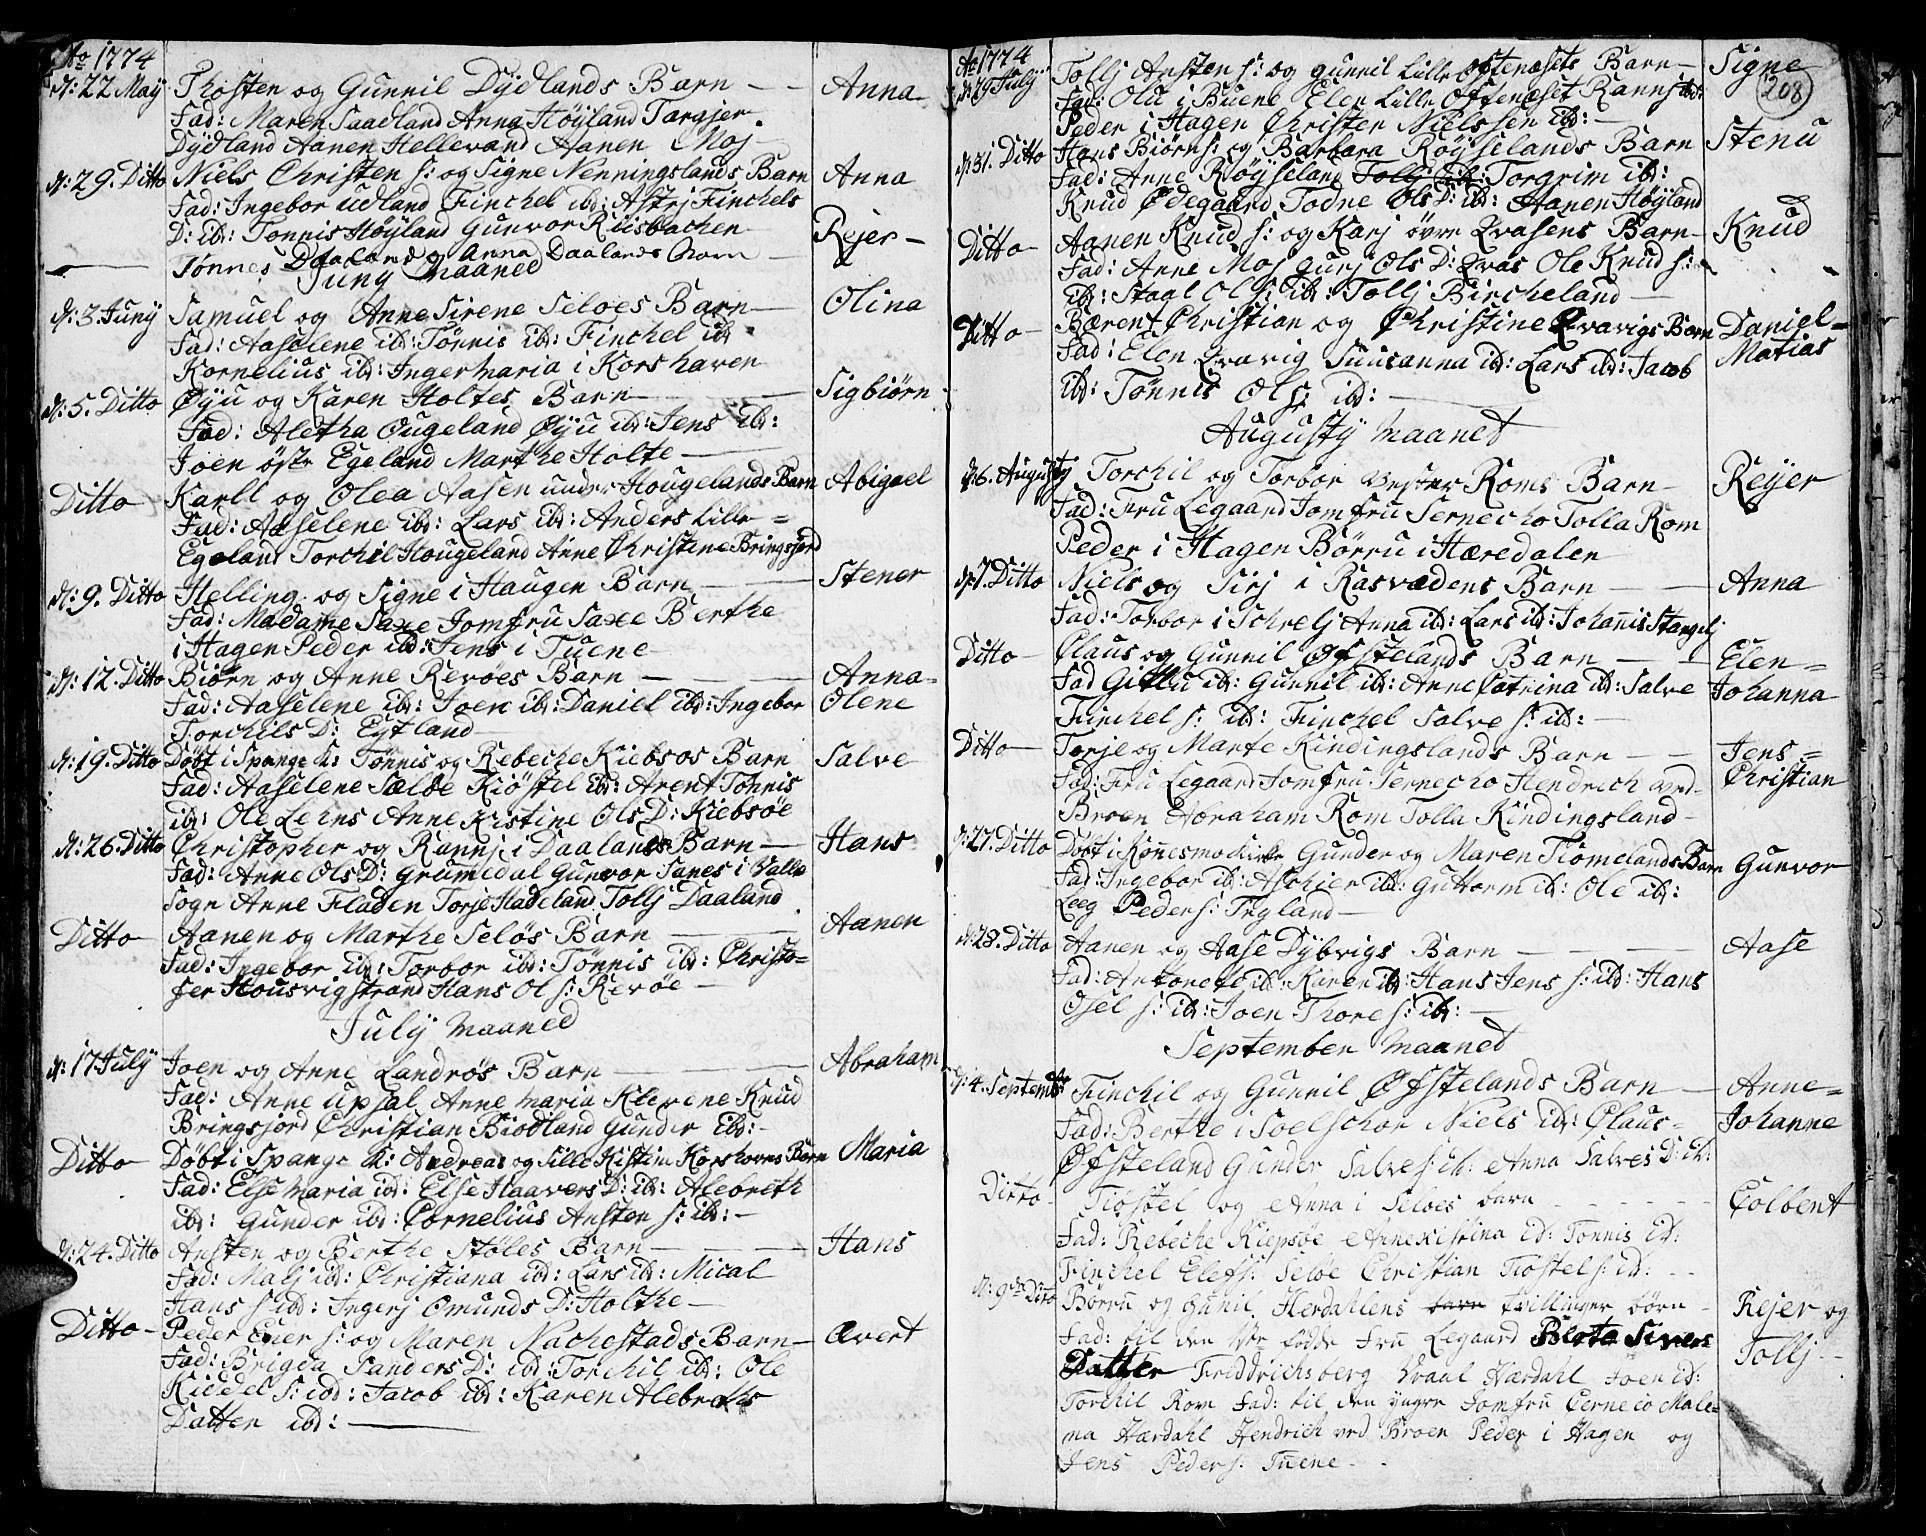 Ao 1774
d: 22 May Thosten og Gunnil Dydlands Barn — Anna
Fad: Maren Saadland Anna Höyland Targjer
Dydland Aanen Hellevand Aanen Moj
d: 29. Ditto Niels Christen s: og Signe Nenningslands Barn Anna
Fad: Ingebor udland Finchel ibd: Astrj Finchels
D: ib: Tonnis Höyland Gunvor Risbachen
Tønnes Daalands Anna Daalands Barn — Rejer
Juny Maaned
d: 3 Juny Samuel og Anne Sirene Seloes Barn — Olina
Fad: Aaselene ib: Tönnis ib: Finchel ib
Kornelius ib: Inger Maria i Korshaven
d: 5. Ditto Øyu og Karen Holtes Barn — Sigbiörn
Fad: Aletha Ougeland Öyu ib: Jens ib:
Joen östr Egeland Marthe Holte
Ditto Karll og Olea Aasen under Hougelands Barn Abigael
Fad: Aaselene ib: Lars ib: Anders Lille =
Egeland Torchil Hougeland Anne Christine Bringsjord
d: 9. Ditto Helling og Signe i Haugen Barn — Stener
Fad: Madame Saxe Jomfru Saxe Berthe
i Hagen Peder ib: Jens i Tuene
d: 12. Ditto Biörn og Anne Revöes Barn — Anna=
Fad: Aaselene ib: Joen ib: Daniel ib: Ingebor Olene
Torchils D: Eytland
d: 19. Ditto Döbt i Spange k: Tönnis og Rebeche Kiebsos Barn Salve
Fad: Aaselene Sælöe Kiöstel ib: Arent Tönnis
ib: Ole Lehns Anne Kistine Ols D: Kiebsöe
d: 26. Ditto Christopher og Rannj i Daalands Barn — Hans
Fad: Anne Ols D: Grumedal Gunvor Sanes i Valle
Sogn Anne Fladen Torje Hadeland Tollj Daaland
Ditto Aanen og Marthe Selös Barn — Aanen
Fad: Ingebor ib: Torbor ibd: Tönnis ib: Christo=
fer Housvigstrand Hans Ol s: Revöe —
July Maaned
d: 17 July Joen og Anne Landrös Barn — Abraham
Fad: Anne Upsal Anne Maria Klevene Knud
Bringsjord Christian Biodland Gunder ibd:
Ditto Döbt i Spange k: Andreas og Sille Kistine Korshavns Barn Maria
Fad: Else Maria ib: Else Haavers D: ib: Alebreth
ib: Gunder ibd: Cornelius Ansten s: ib: —
d: 24. Ditto Ansten og Berthe Stöles Barn — Hans
Fad: Malj ib: Christiana ib: Lars ib: Mical
Hans s: ibd: Ingerj Omunds D: Holthe —
Ditto Peder Eiler s: og Maren Nachestads Barn — Ævert
Fad: Brigda Sanders D: ib: Torchil ib: Ole
Kiddel s: ibd: Jacob ib: Karen Alebreths
Datter ib: —
Ao 1774
208
d: 29 July Tollj Ansten s: og Gunnil Lille Oftenæsets Barn — Signe
Fad: Olu i Buene Elen Lille Oftenæset Rannj ibd:
Peder i Hagen Christen Nielssen ib: —
d: 31. Ditto Hans Biörn s: og Barbara Röyselands Barn Stenu
Fad: Anne Röyseland Tollj ib: Torgrim ib:
Knud Ødegaard Todne Ols D: ib: Aanen Höyland
Ditto Aanen Knud s: og Karj övre Qvasens Barn — Knud
Fad: Anne Moj Gurj Ols D: Qvas Ole Knud s:
ib: Stagl Ol s: ib: Tollj Bircheland —
Ditto Bærent Christian og Christine Qvavigs Barn Daniel=
Fad: Elen Qvavig Susanna ib: Lars ib: Jacob Matias
ib: Tönnis Ols: ib: —
Augusty Maanet
d: 6. Augusty Torchil og Torbor Vester Roms Barn — Reyer
Fad: Fru Legaard Jomfru Sernecho Tolla Rom
Peder i Hagen Börru i Hæredalen
d: 7. Ditto Niels og Sirj i Rasvadens Barn — Anna
Fad: Torbor i Schrelj Anna ib: Lars ib: Johanis Stangelj
Ditto Claus og Gunnil Ofstelands Barn — Elen=
Fad Gitlu ib: Gunnil ib: Anne Catrina ib: Salve Johanna
Finchel s: ib: Finchel Salve s: ib: —
Ditto Torje og Marte Kindingslands Barn — Jens=
Fad: Fru Legaard Jomfru Sernecho Hendrich ved Christian
Broen Abraham Rom Tolla Kindingsland —
d: 27. Ditto Döbt i Konnesmo kirke Gunder og Maren Tiomelands Barn Gunvor
Fad: Ingebor ib: Aschier ib: Guttorm ib: Ole ib:
Leeg Peder s: Tryland —
d: 28. Ditto Aanen og Aase Dybvigs Barn — Aase
Fad: Antonete ib: Karen ib: Hans Jens s: ib: Hans
Osel s: ib: Joen Thore s: ib: —
September Maanet
d: 4. Septembr Finchil og Gunnil Øfstelands Barn — Anne=
Fad: Berthe i Soelschor Niels ib: Claus= Johanne
Øfsteland Gunder Salve s: ib: Anna Salves D: ib:
Ditto Tiöstel og Anna i Seloes barn — Colbent
Fad: Rebeche Kiepsöe Annekistina ib: Tonnis ib:
Finchel Elefs: Selöe Christian Tiostel s: ib:
d: 9de Ditto Börru og Gunil Herdahlens barn tvillinger börn — Rejer og
Fad: til den förr födde Fru Legaard Beata Sivers Tollj
Datter Fridrichsberg Vraal Hærdahl Joen ib:
Torchil Rom Fad: til den yngre Jomfru Cerneco Male=
na Hærdahl Hendrich ved Broen Peder i Hagen og
Jens Peder s: Tuene